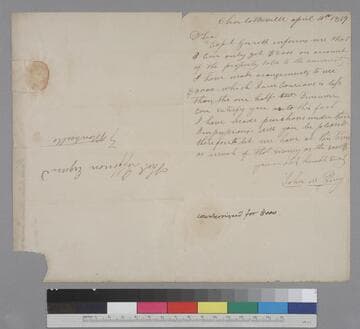 Charlottesville april 10th 1819
D Sir
Capt Garrett informs me that
I can only get $2000 on account
of the property sold to the university
I have made arrangements to use
$3000 which I am conscious is less
than the one half
can satisfy you as to the fact
I have made purchases under these
impressions will you be pleased
therefore to let me have at this time
as much of that money as the
your Hble Servt
John M Perry
countersigned for 3000
Tho Jefferson Esqr
Monticello